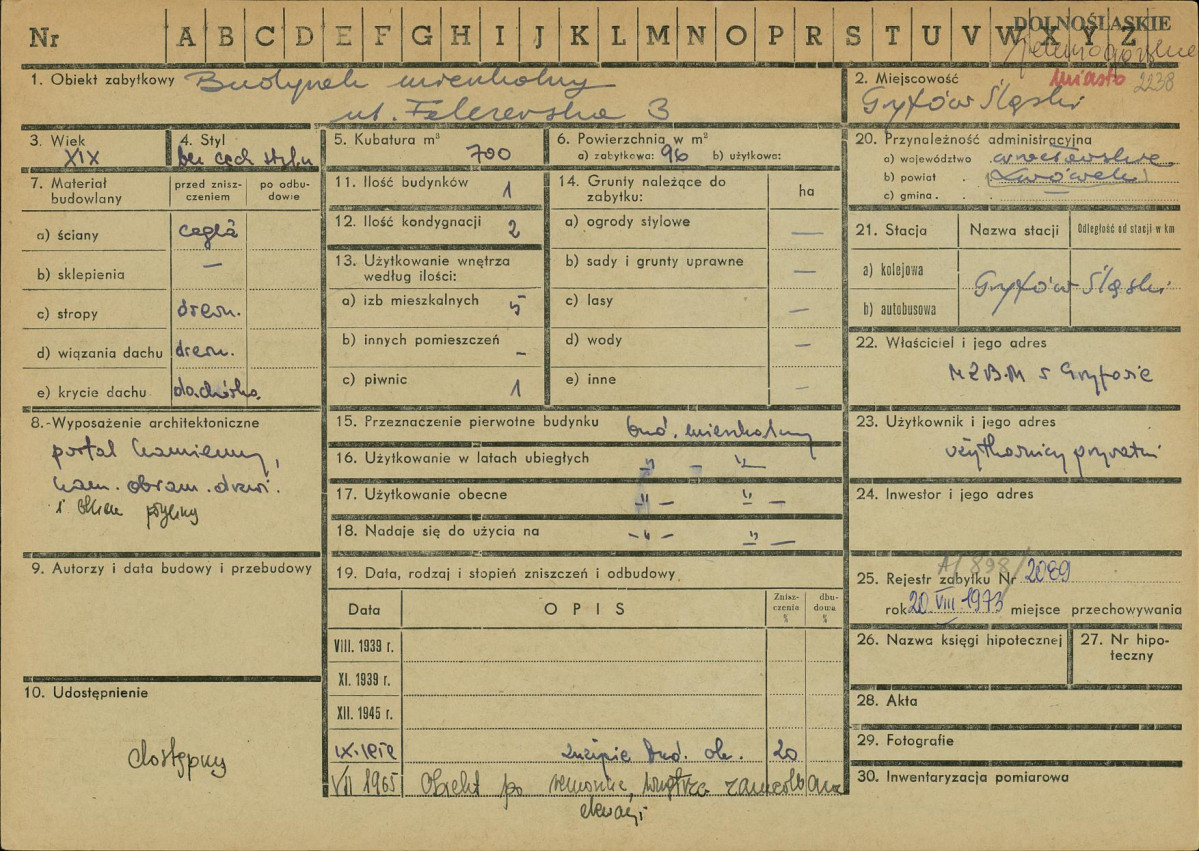 DOLNOŚLĄSKIE
Nr A B C D E F G H I J K L M N O P R S T U V W X Y Z
jeleniogórskie
1. Obiekt zabytkowy Budynek mieszkalny
ul. 3
2. Miejscowość miasto 2238
Gryfów Śląski
3. Wiek
XIX
4. Styl
bez cech stylu
5. Kubatura m³ 700
6. Powierzchnia w m²
a) zabytkowa: 96 b) użytkowa:
20. Przynależność administracyjna
a) województwo wrocławskie
b) powiat . (Lwówek)
c) gmina . .
7. Materiał budowlany
przed zniszczeniem
po odbudowie
a) ściany cegła
b) sklepienia —
c) stropy drewn.
d) wiązania dachu drewn.
e) krycie dachu dachówka
11. Ilość budynków 1
12. Ilość kondygnacji 2
13. Użytkowanie wnętrza
według ilości:
a) izb mieszkalnych 5
b) innych pomieszczeń -
c) piwnic 1
14. Grunty należące do
zabytku:
ha
a) ogrody stylowe —
b) sady i grunty uprawne —
c) lasy —
d) wody —
e) inne —
21. Stacja Nazwa stacji Odległość od stacji w km
a) kolejowa
Gryfów Śląski
b) autobusowa
22. Właściciel i jego adres
MZBM w Gryfowie
8.-Wyposażenie architektoniczne
portal kamienny,
kam. obram. drzwi.
i okien
15. Przeznaczenie pierwotne budynku bud. mieszkalny
16. Użytkowanie w latach ubiegłych " — " —
17. Użytkowanie obecne " — " —
18. Nadaje się do użycia na - " - " —
23. Użytkownik i jego adres
użytkownicy prywatni
24. Inwestor i jego adres
9. Autorzy i data budowy i przebudowy
19. Data, rodzaj i stopień zniszczeń i odbudowy
Data OPIS Zniszczenia % dbudowa %
VIII. 1939 r.
XI. 1939 r.
XII. 1945 r.
IX. bud. ok. 20
VII 1965 Obiekt po remoncie, wnętrza
25. Rejestr zabytku Nr A/898/ 2089
rok 20 VIII 1973 miejsce przechowywania
26. Nazwa księgi hipotecznej
27. Nr hipoteczny
10. Udostępnienie
dostępny
28. Akta
29. Fotografie
30. Inwentaryzacja pomiarowa